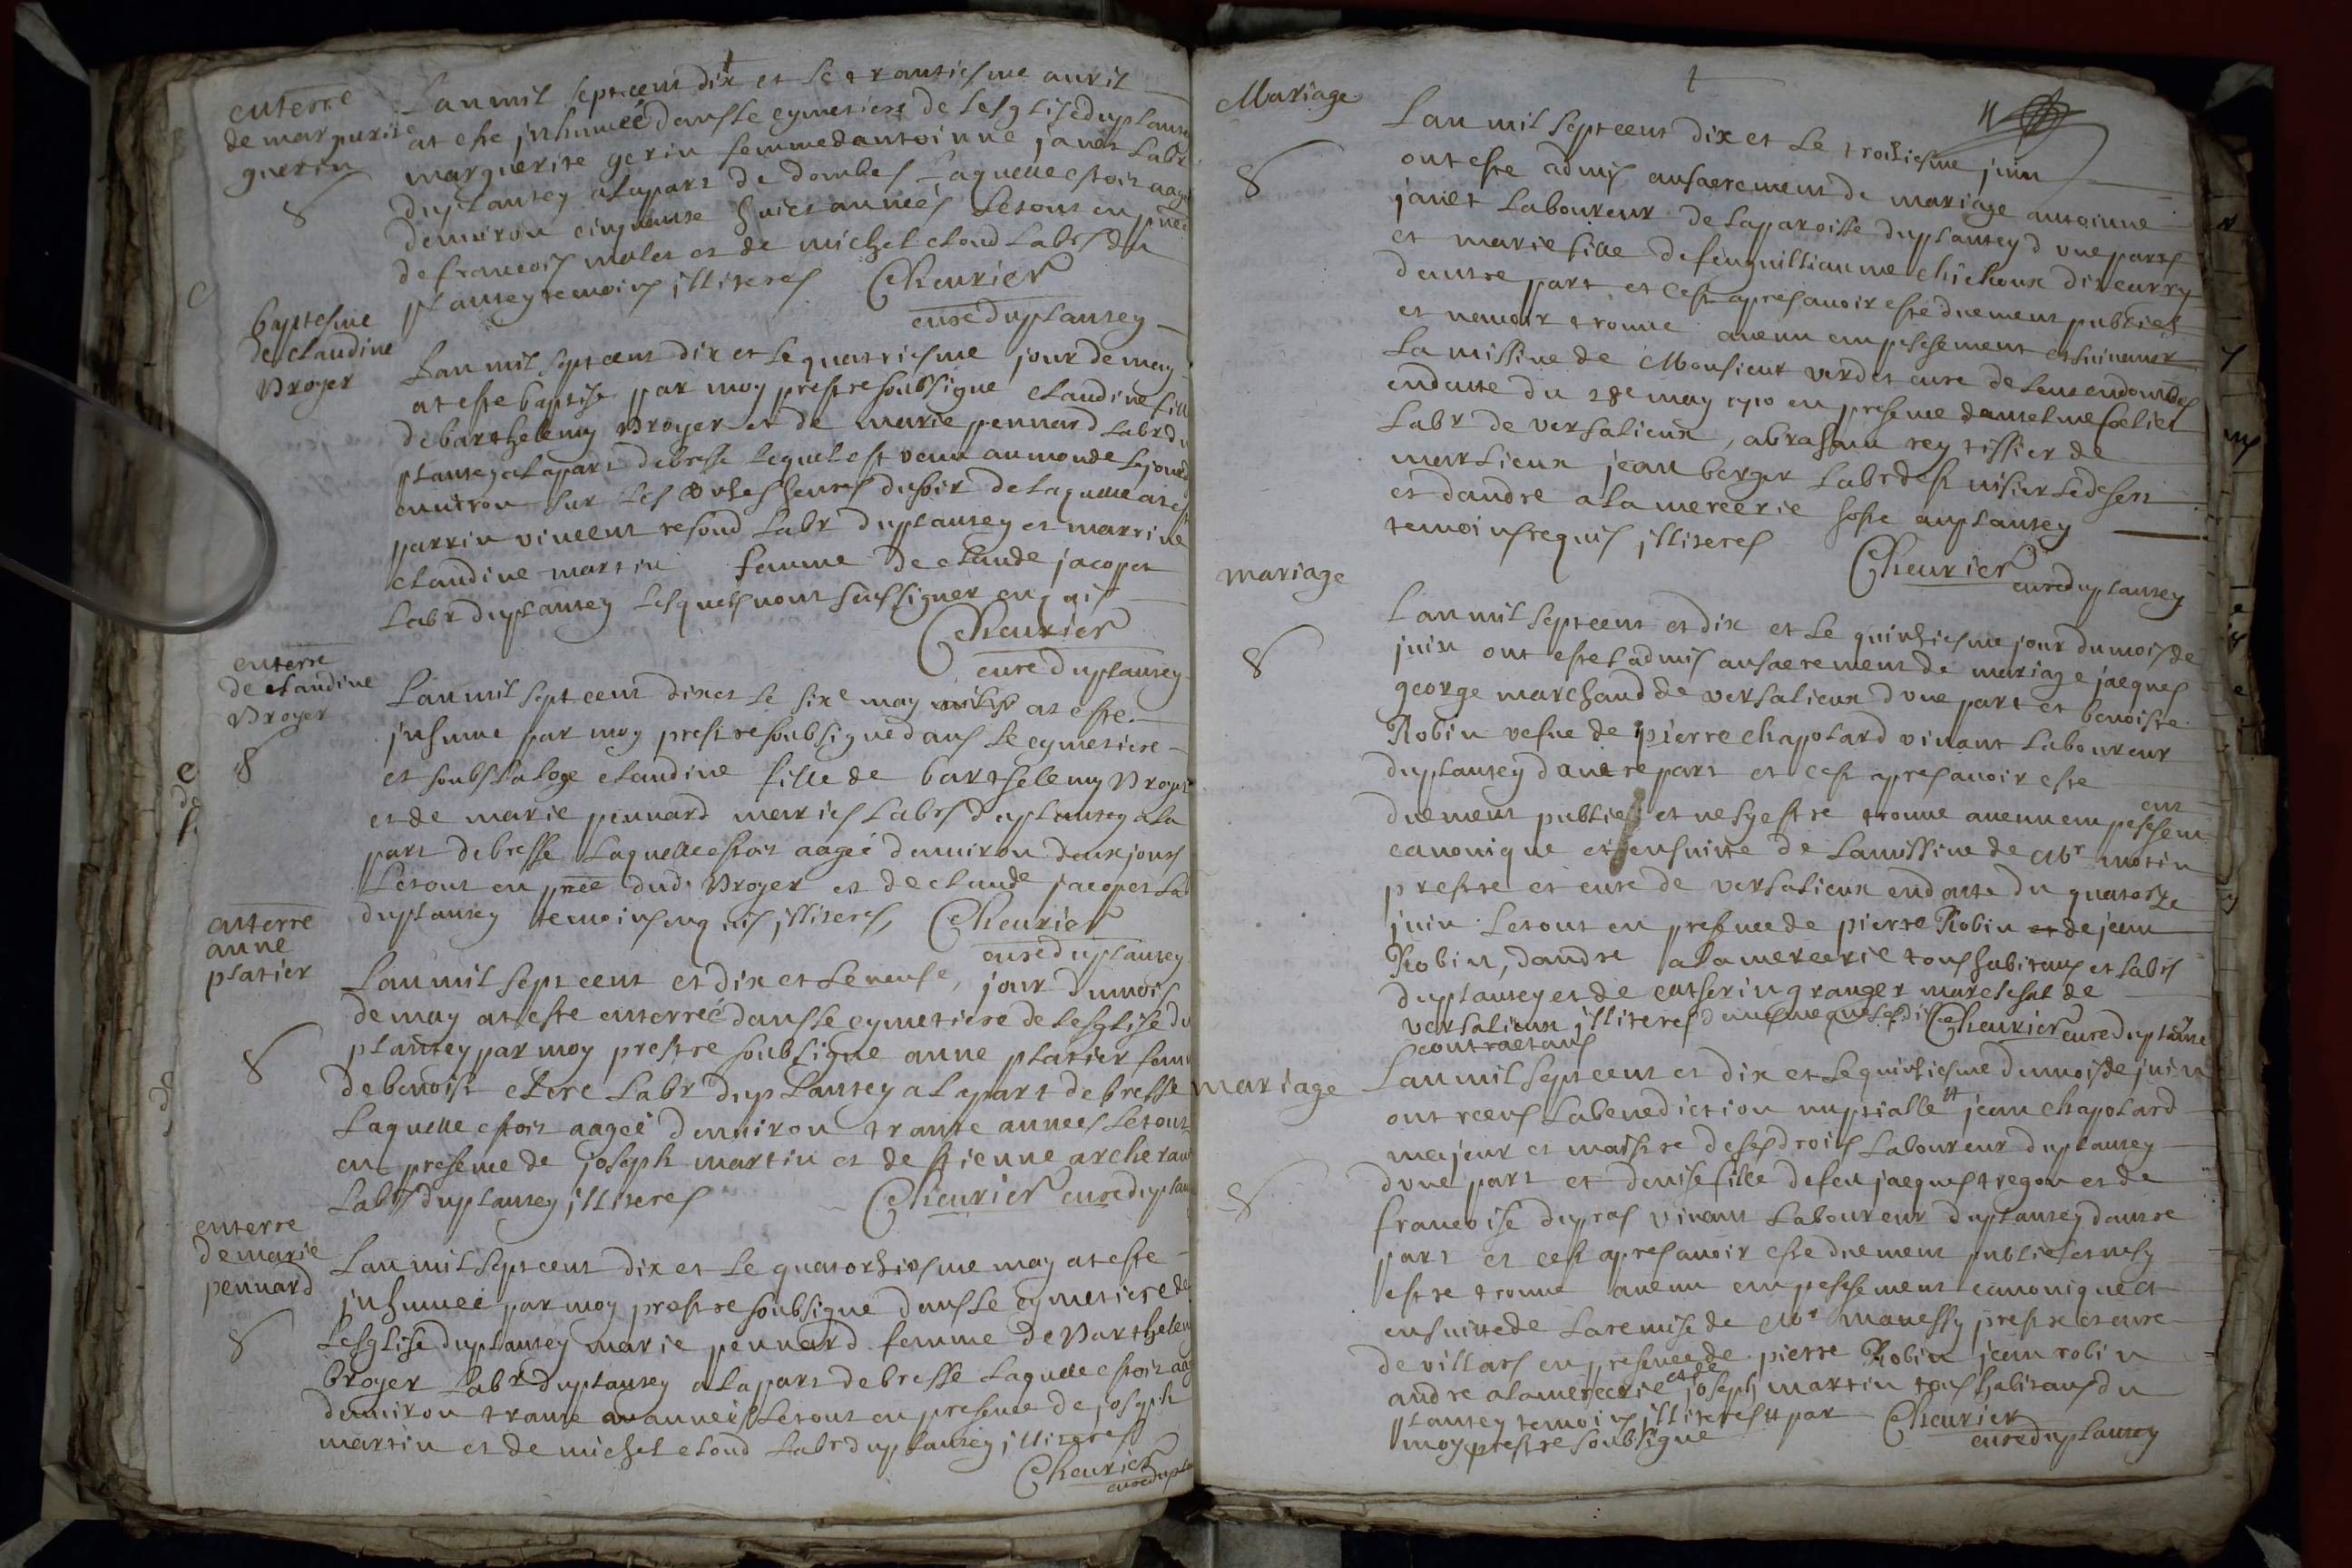 enterre
de margurite
guerin
Lan mil sept cent dix et le trantiesme auril
at este inhumeé dans le cymetiere de lesglise duplante
marguerite gerin femme dantoinne janet labr
duplantey alapart de dombes laquelle estoit aagé
denuiron cinquante huict anneés le tout en pnce
de francois moles et de michel cloud labrs du
plantey temoins illiteres Cheurier
cure duplantey
baptesme
de claudine
Broyer
Lan mil sept cent dix et le quatriesme jour de may
at este baptise par moy prestre soubsigne claudine fille
de barthelemy Broyer et de marie pennard labr du
plantey alapart de bresse lequel est venu au monde le jour
enuiron sur les heures du soir de laquelle at est
parrin vincent refond labr duplantey et marrine
claudine martin femme de claude jacopet
labr duplantey lesquels nont sceu signer enquis
Cheurier
cure duplantey
enterre
de claudine
Broyer
Lan mil sept cent dix et le sixe may at este
inhume par moy prestre soubsigne dans le cymetiere
et soubs laloge claudine fille de barthelemy Broyer
et de marie pennard maries labrs duplantey ala
part de bresse laquelle estoit aageé denuiron deux jours
le tout en pnce dud. Broyer et de claude jacopet lab
duplantey temoins enquis illiteres, Cheurier
cure duplantey
anterre
anne
platier
Lan mil sept cent et dix et le neufe, jour du mois
de may at este enterreé dans le cymetiere de lesglise du
plantey par moy prestre soubsigne anne platier fem
de benoist clere labr duplantey alapart de bresse
laquelle estoit aageé denuiron trante anneés le tout
en presence de joseph martin et de stienne archeran
labrs duplantey illiteres Cheurier cure duplan
enterre
de marie
pennard
Lan mil sept cent dix et le quatorhiesme may at este
inhumeé par moy prestre soubsigne dans le cymetiere de
lesglise duplantey marie pennard femme de Barthelem
broyer labr duplantey alapart de bresse laquelle estoit aag
denuiron trante anneés le tout en presence de joseph
martin et de michel cloud labr duplantey illiteres
Cheurier
cure duplan
Mariage
11
Lan mil sept cent dix et le troisiesme juin
ont este admis ausacrement de mariage antoinne
janet laboureur de laparoisse duplantey dune part
et marie fille de feu guillianme chichoux dit curry
dautre part et cest apres auoir este duement publiet
et nauoir trouue aucun empeschement et suivant
la missiue de Monsieur verdet cure de lent en dombes
en datte du 28e may 1710 en presence danselme
labr de versalieux, abraham rey tissier de
marlieux jean berger labr
et dandre alamercerie hoste auplantey
temoins requis illiteres
Cheurier
cure duplantey
mariage
Lan mil sept cent et dix et le quinhiesme jour du mois de
juin ont estes admis ausacrement de mariage jacques
george marchand de versalieux dune part et benoiste
Robin vefue de pierre chapolard viuant laboureur
duplantey dautre part et cest apres auoir este
duement publies et nesy estre trouue aucun empeschement
canonique et ensuitte de lamissiue de Mr morin
prestre et cure de versalieux en datte du quatorze
juin le tout en presence de pierre Robin et de jean
Robin, dandre alamercerie tous habitans et labrs
duplantey et de catherin granger mareschal de
versalieux illiteres de mesme que lesdis Cheurier cure duplantey
contractans
mariage
Lan mil sept cent et dix et le quinhiesme du mois de juin
ont receus labenediction nuptialle # jean chapolard
majeur et maistre de ses droits laboureur duplantey
dune part et denise fille de feu jacques tregon et de
francoise dupras viuant laboureur duplantey dautre
part et cest apres auoir este duement publies et nesy
estre trouue aucun empeschement canonique et
ensuitte de laremise de Mr manessy prestre et cure
de villars en presence de pierre Robin jean robin
andre alamercerie et de joseph martin tous habitans du
plantey temoins illiteres # par Cheurier
moy prestre soubsigne cure duplantey